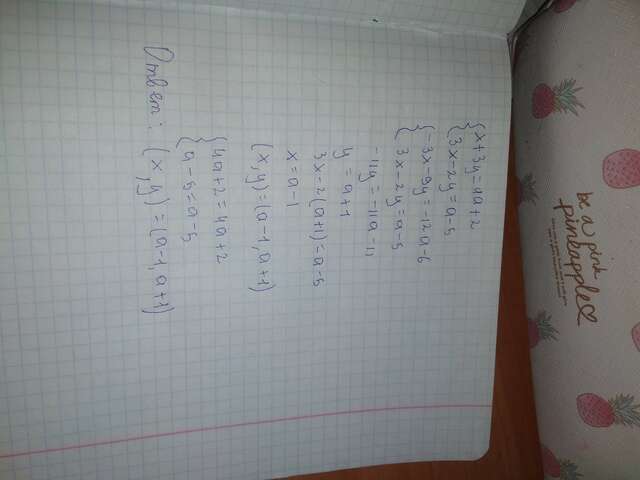 {x+3y-4a+2
{3x-2y=a-5
{-3x-9y=-12a-6
{3x-2y=a-5
-11y=-11a-11
y=a+1
3x-2(a+1)=a-5
x=a-1
(x,y)=(a-1,a+1)
{4a+2=4a+2
{a-5=a-5
Ответ: (x,y)=(a-1,a+1)
be a pink
pineapple